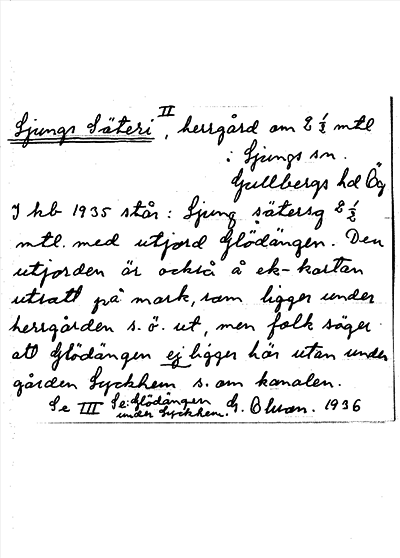 II
Ljungs Säteri, herrgård om 2 1/2 mtl
i Ljungs sn.
Gullbergs hd Ög
I kb 1935 står: Ljung sätersg 2 1/2
mtl. med utjord Glödängen. Den
utjorden är också å ek-kartan
utsatt på mark, som ligger under
herrgården s.ö. ut, men folk säger
att Glödängen ej ligger här utan under
gården Lyckhem s. om kanalen.
Se III Se: Glödängen under Lyckhem. G. Olson. 1936